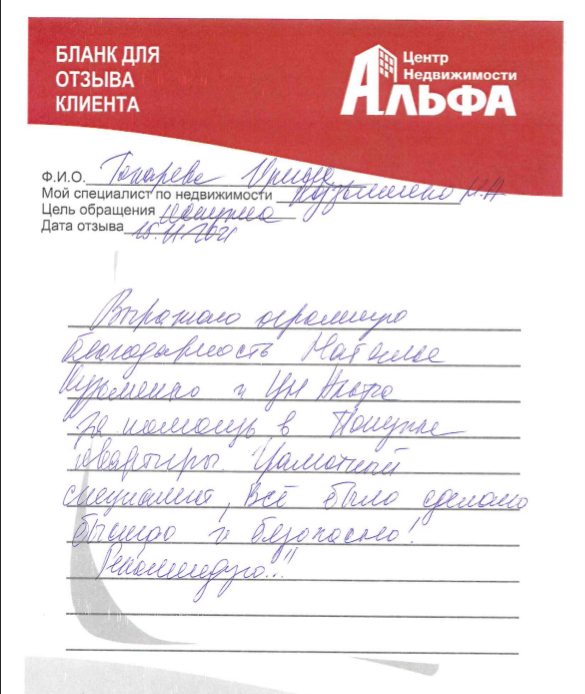 БЛАНК ДЛЯ
ОТЗЫВА
КЛИЕНТА
Центр
Недвижимости
АЛЬФА
Ф.И.О. Токарева Ирина
Мой специалист по недвижимости Кузьменко Н.А
Цель обращения покупка
Дата отзыва 15.11.2021
Выражаю огромную
благодарность Наталье
Кузьменко и ЦН Альфа
за помощь в покупке
квартиры. Грамотный
специалист, всё было сделано
быстро и безопасно!
Рекомендую!!!